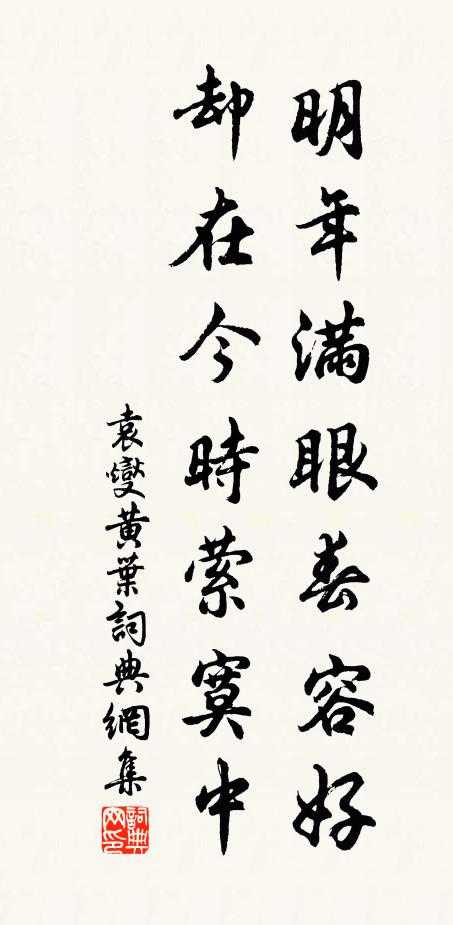 明年滿眼春容好
却在今時索寞中
袁燮黄葉詞典網集
詞典
网印